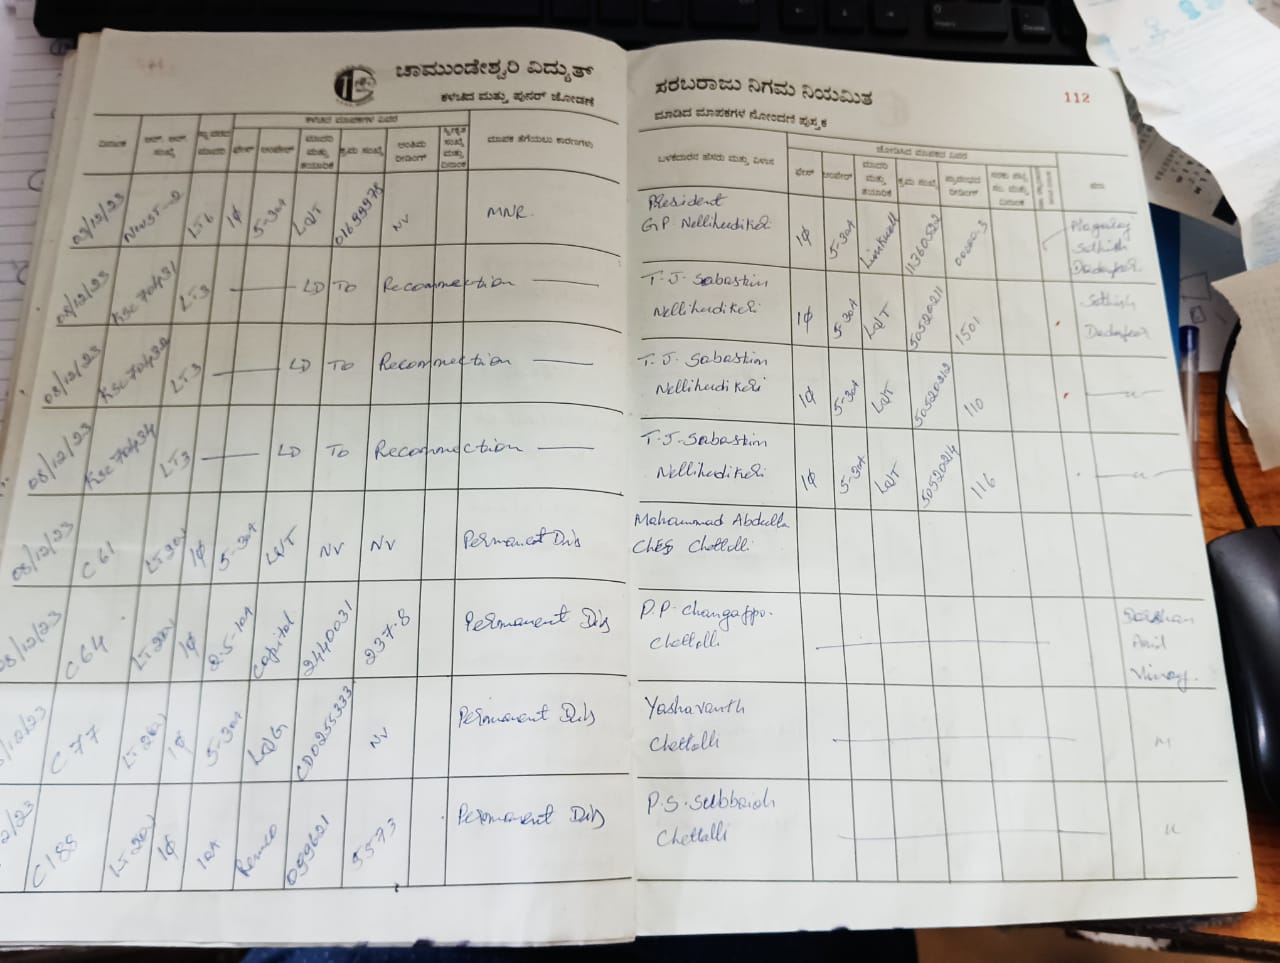 ಚಾಮುಂಡೇಶ್ವರಿ ವಿದ್ಯುತ್ ಸರಬರಾಜು ನಿಗಮ ನಿಯಮಿತ
112
ಕಳಚಿದ ಮತ್ತು ಪುನರ್ ಜೋಡಣೆ ಮಾಡಿದ ಮಾಪಕಗಳ ನೋಂದಣಿ ಪುಸ್ತಕ
ಕಳಚಿದ ಮಾಪಕಗಳ ವಿವರ
ಜೋಡಿಸಿದ ಮಾಪಕದ ವಿವರ
ದಿನಾಂಕ ಆರ್. ಆರ್. ಸಂಖ್ಯೆ ಫೇಸ್ ಆಂಪೇರ್ ಮಾದರಿ ಮತ್ತು ತಯಾರಿಕೆ ಕ್ರಮ ಸಂಖ್ಯೆ ಅಂತಿಮ ರೀಡಿಂಗ್ ಮಾಪಕ ತೆಗೆಯಲು ಕಾರಣಗಳು ಬಳಕೆದಾರನ ಹೆಸರು ಮತ್ತು ವಿಳಾಸ ಫೇಸ್ ಆಂಪೇರ್ ಮಾದರಿ ಮತ್ತು ತಯಾರಿಕೆ ಕ್ರಮ ಸಂಖ್ಯೆ ಪ್ರಾರಂಭದ ರೀಡಿಂಗ್
LT6 1φ 5-30A L&T 01699975 NV MNR. President
GP Nellihudikeri 1φ 5-30A Linkwell 11360522 00000.3
08/12/23 KSC70431 LT3 LD To Reconnection T. J. Sabastin
Nellihudikeri 1φ 5-30A L&T 50520211 1501 Sathish
08/12/23 KSC70432 LT3 LD To Reconnection T. J. Sabastin
Nellihudikeri 1φ 5-30A L&T 50520212 110 —〃—
08/12/23 KSC70434 LT3 LD To Reconnection T. J. Sabastin
Nellihudikeri 1φ 5-30A L&T 50520214 116 —〃—
08/12/23 C61 1φ 5-30A L&T NV NV Permanent Dis Mahammad Abdulla
Chettalli
08/12/23 C64 1φ 2.5-10A Capital 2440031 237.8 Permanent Dis P.P. Changappa.
Chettalli Darshan
Anil
Vinay
C77 1φ 5-30A L&G CD0255333 NV Permanent Dis Yashavanth
Chettalli 〃
C188 1φ 10A Remco 099621 5573 Permanent Dis P.S. Subbaiah
Chettalli 〃